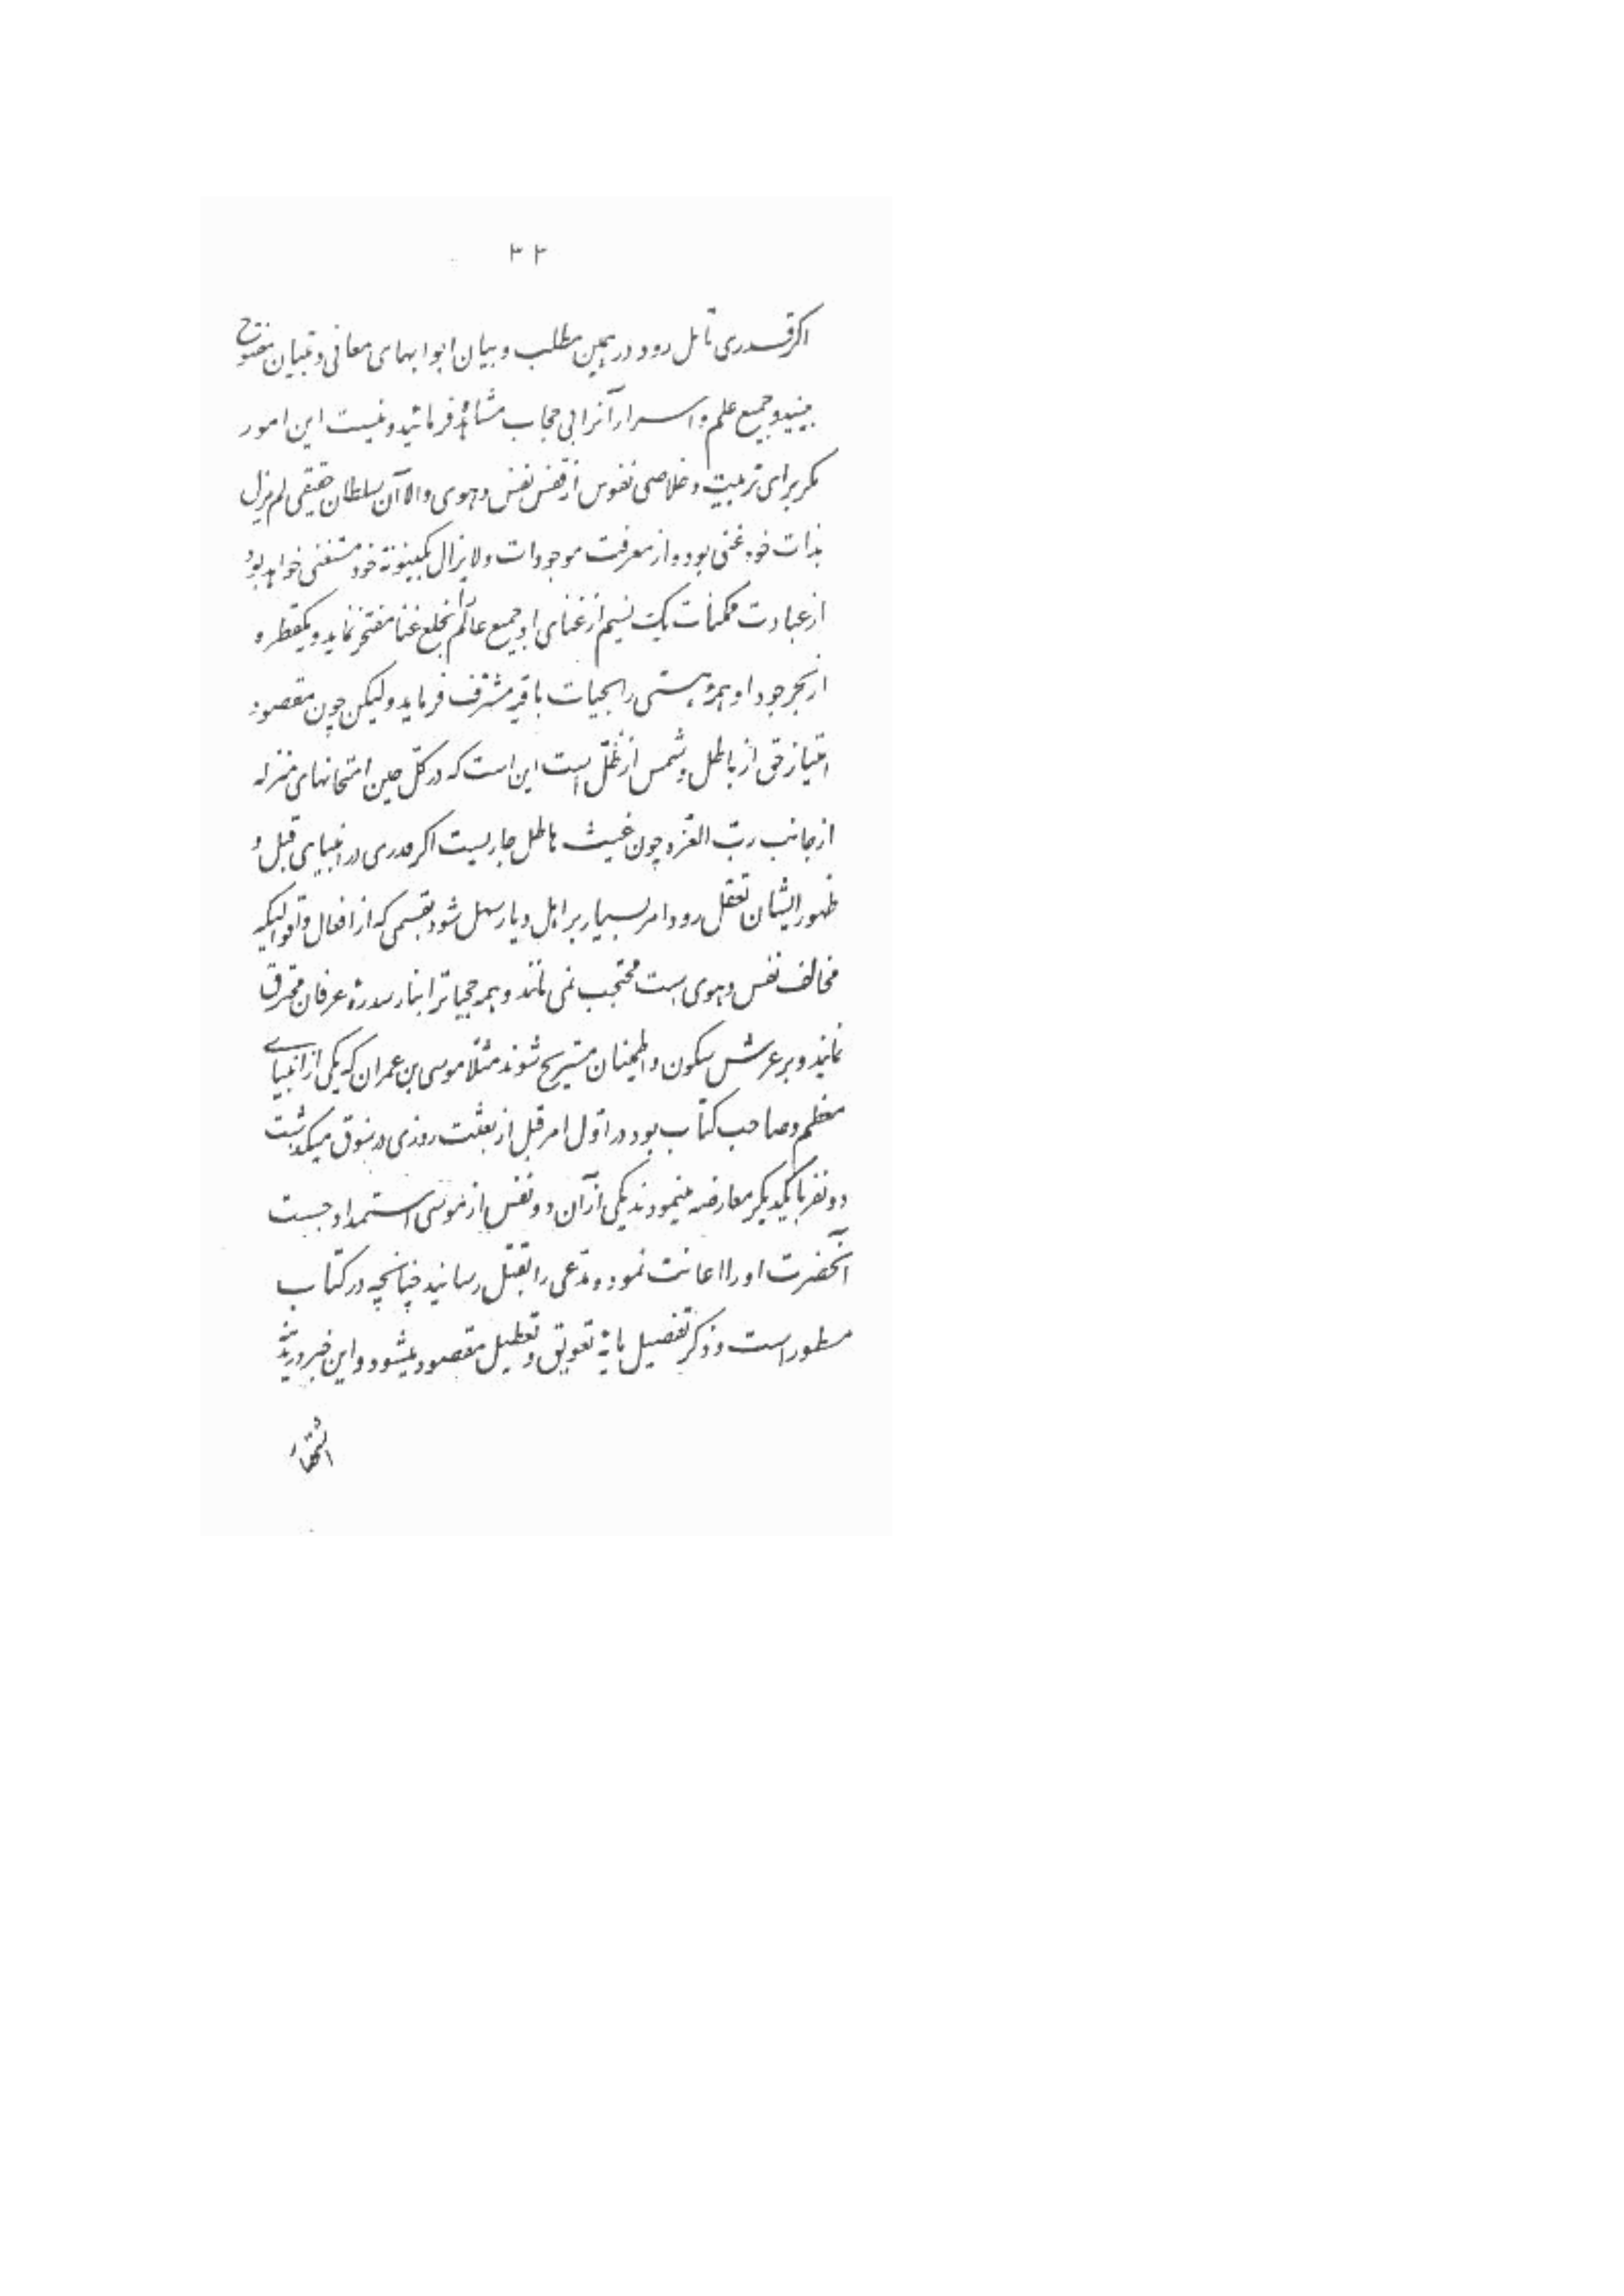 ۳۲
اکر قدری تأمل رود در همین مطلب و بیان ابوابهای معانی و تبیان مفتوح
بینید و جمیع علم و اسرار آنرا بی حجاب مشاهده فرمائید و نیست این امور
مکر برای تربیت و خلاصی نفوس از قفس نفس و هوی والا آن سلطان حقیقی لم یزل
بذات خود غنی بوده از معرفت موجودات و لا یزال بکینونة خود مستغنی خواهد بود
از عبادت ممکنات یک نسیم از غنای او جمیع عالم را بخلع غنا مفتخر نماید و یکقطره
از بحر جود او همه هستی را بحیات باقیه مشرف فرماید ولیکن چون مقصود
امتیاز حق از باطل و شمس از ظلّ است این است که در کلّ حین امتحانهای منزله
از جانب ربّ العزه چون غیث هاطل جاریست اکر قدری در انبیای قبل و
ظهور ایشان تعقل رود امر بسیار بر اهل دیار سهل شود بقسمی که از افعال و اقوالیکه
مخالف نفس و هوی است محتجب نمی مانند و همه حجباترا بنار سدرهٔ عرفان محترق
نمایند و بر عرش سکون و اطمینان مستریح شوند مثلاً موسی بن عمران که یکی از انبیای
معظم و صاحب کتاب بود در اوّل امر قبل از بعثت روزی در سوق میکذشت
دو نفر با یکدیکر معارضه مینمودند یکی از آن دو نفس از موسی استمداد جست
آنحضرت او را اعانت نمود و مدّعی را بقتل رسانید چنانچه در کتاب
مسطور است و ذکر تفصیل مایهٔ تعویق و تعطیل مقصود میشود و این خبر در مدینه